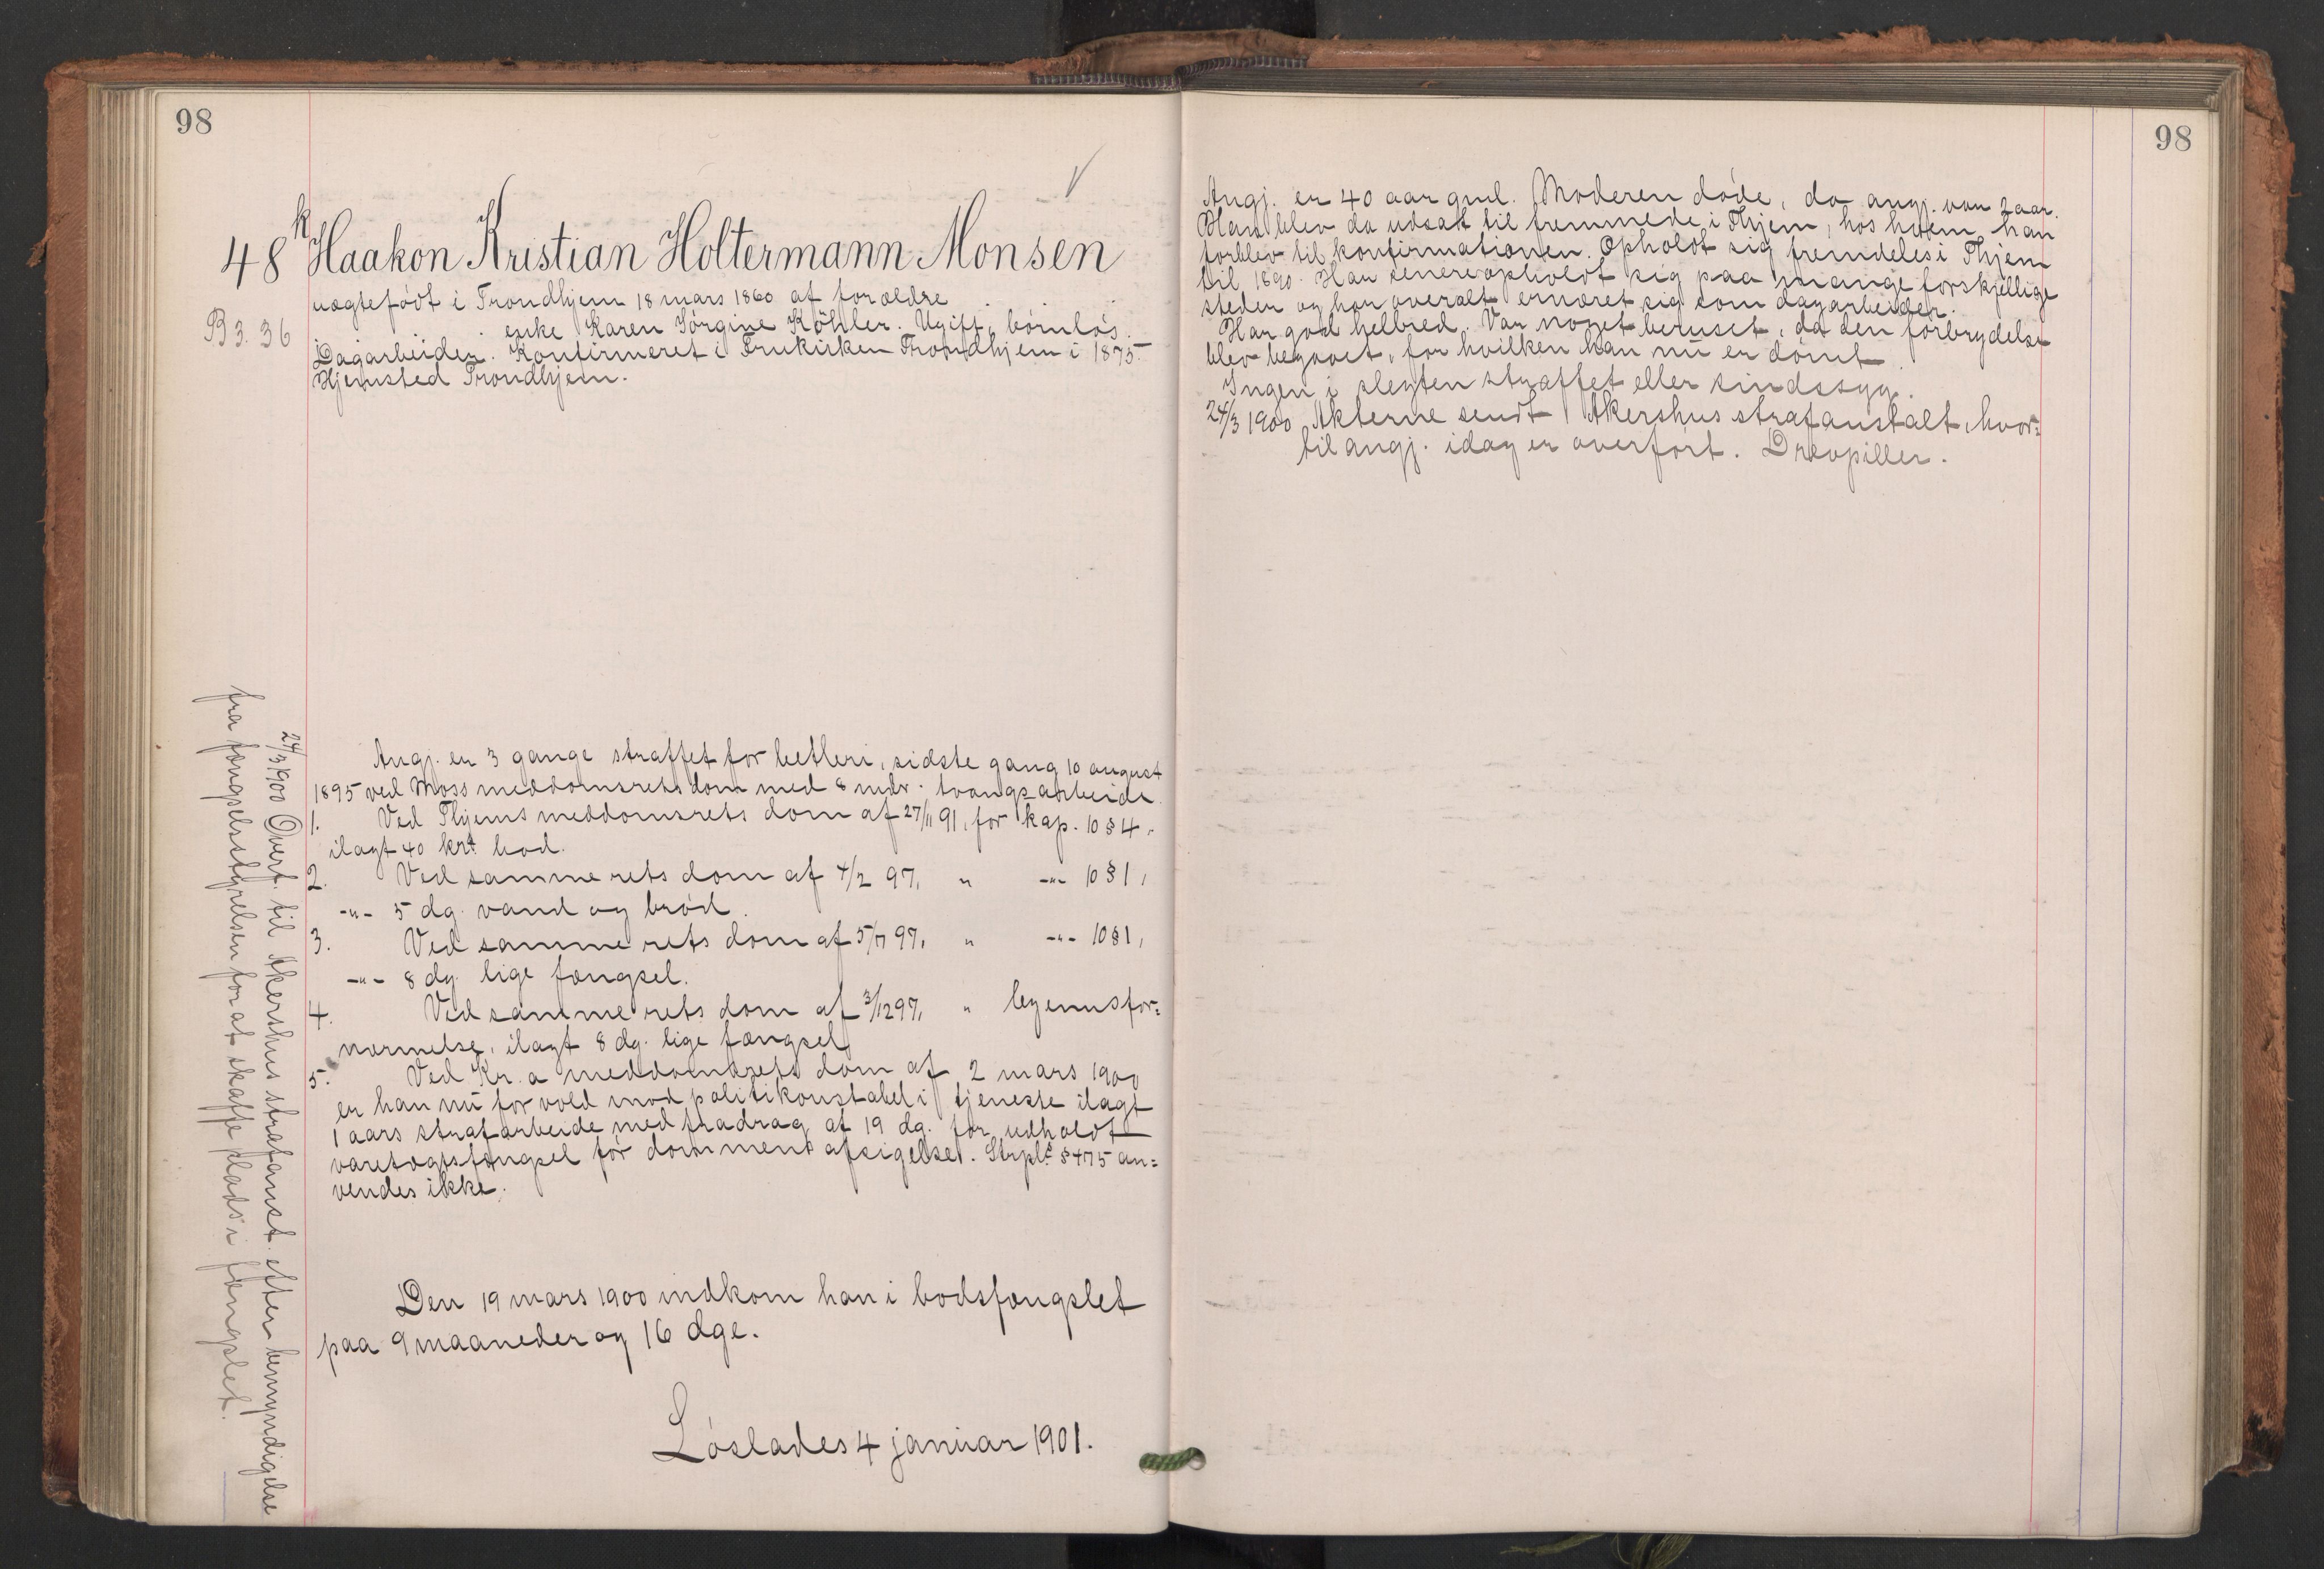 98
48 k Haakon Kristian Holtermann Monsen
B 3. 36
uægtefødt i Trondhjem 18 mars 1860 af forældre . . .
. . enke Karen Jørgine Köhler. Ugift, børnløs.
Dagarbeider. Konfirmeret i Fruekirken Trondhjem i 1875.
Hjemsted Trondhjem.
Angj. er 3 gange straffet for betleri, sidste gang 10 august
1895 ved Moss meddomsrets dom med 8 mdr. tvangsarbeide.
1. Ved Thjems meddomsrets dom af 27/11 91, for kap. 10 § 4,
ilagt 40 krs bod.
2. Ved samme rets dom af 4/2 97, " -"- 10 § 1,
-"- 5 dg. vand og brød.
3. Ved samme rets dom af 5/7 97, " -"- 10 § 1,
-"- 8 dg. lige fængsel.
4. Ved samme rets dom af 3/12 97, " legemsfor=
nærmelse, ilagt 8 dg. lige fængsel.
5. Ved Kr.a meddomsrets dom af 2 mars 1900
er han nu for vold mod politikonstabel i tjeneste ilagt
1 aars strafarbeide med fradrag af 19 dg. for udholdt
varetægtsfængsel før dommens afsigelse. Strpl. § 475 an=
vendes ikke.
Den 19 mars 1900 indkom han i bodsfængslet
paa 9 maaneder og 16 dge.
Løslades 4 januar 1901.
24/3 1900 Overf. til Akershus strafanst. efter bemyndigelse
fra fængselsstyrelsen for at skaffe plads i fængslet.
98
Angj. er 40 aar gml. Moderen døde, da angj. var 2 aar.
Han blev da udsat til fremmede i Thjem, hos hvem han
forblev til konfirmationen. Opholdt sig fremdeles i Thjem
til 1890. Har senere opholdt sig paa mange forskjellige
steder og har overalt ernæret sig som dagarbeider.
Har god helbred. Var noget beruset, da den forbrydelse
blev begaaet, for hvilken han nu er dømt.
Ingen i slegten straffet eller sindssyg.
24/3 1900 Akterne sendt Akershus strafanstalt, hvor=
til angj. idag er overført. Drevpiller.